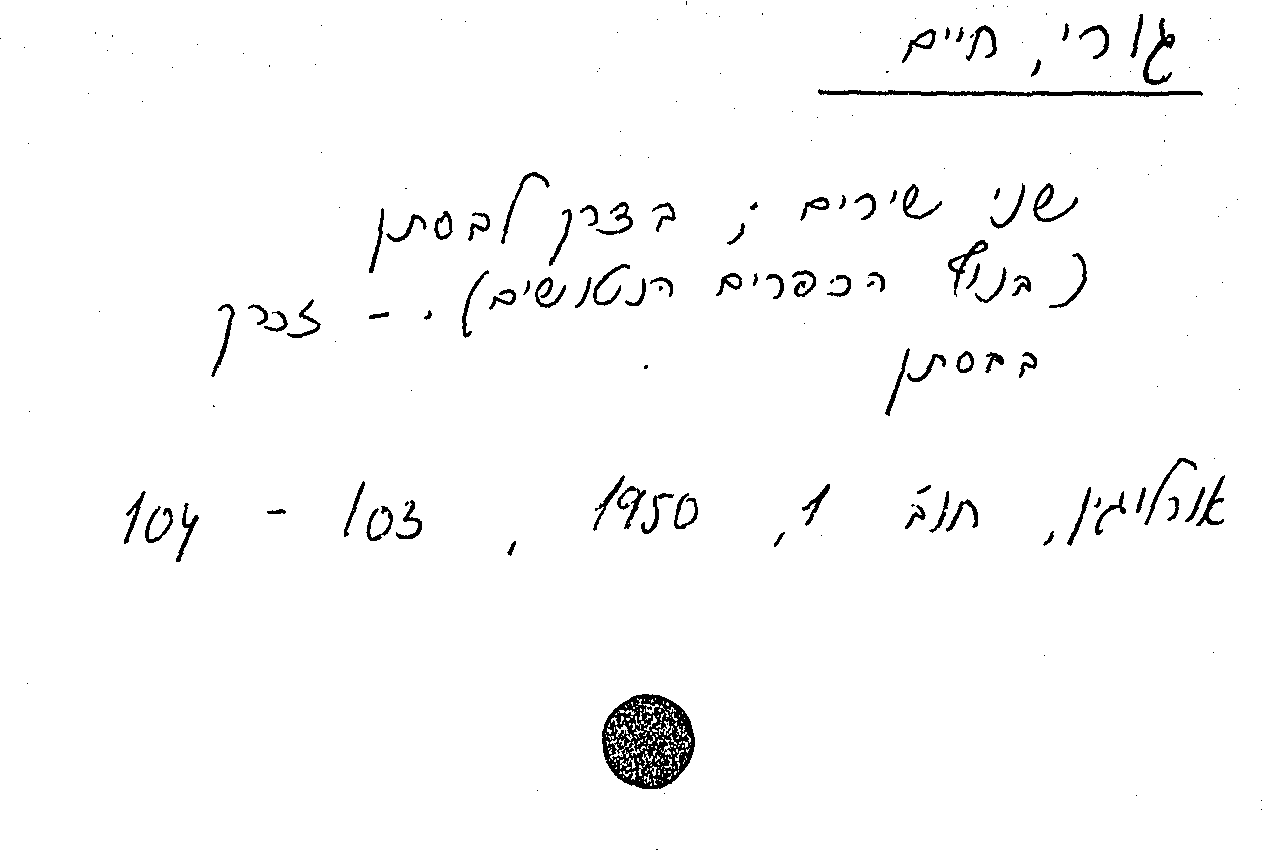 גורי, חיים
שני שירים; בדרך לבסתן
(בנוף הכפרים הנטושים). - זכרך
בבסתן
אורלוגין, חוב' 1, 1950, 103 - 104